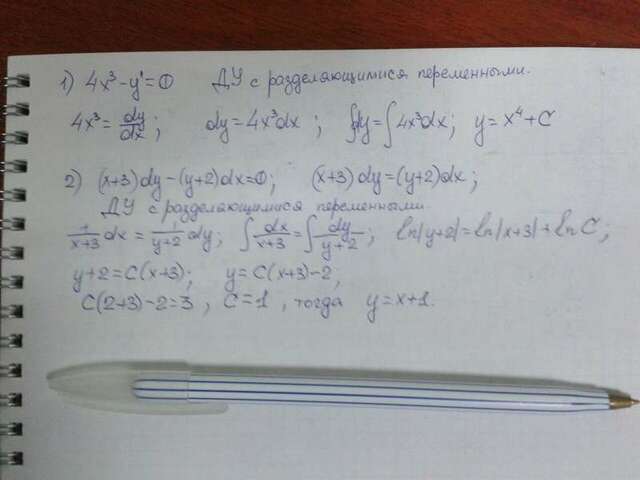 1) 4x³-y'=0 ДУ с разделяющимися переменными.
4x³=dy/dx; dy=4x³dx; ∫dy=∫4x³dx; y=x⁴+C
2) (x+3)dy-(y+2)dx=0; (x+3)dy=(y+2)dx;
ДУ с разделяющимися переменными.
1/(x+3) dx = 1/(y+2) dy; ∫dx/(x+3)=∫dy/(y+2); ln|y+2|=ln|x+3|+lnC;
y+2=C(x+3); y=C(x+3)-2;
C(2+3)-2=3, C=1, тогда y=x+1.